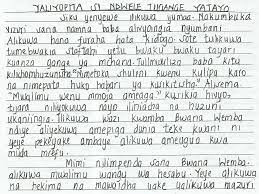 YALIYOPITA SI NDWELE TUGANGE YATAYO
Siku yenyewe ilikuwa Ijumaa. Nakumbuka
vizuri sana namna baba aliyoingia nyumbani
Alikuwa hana furaha hata kidogo. Sote tulikuwa
tumebwaka staftahi yetu bwaku bwaku tayari
kuanza ganga ya mchana. Tulimwuliza baba kitu
kilichomhuzunisha. "Nimetoka shuleni kwenu kulipa karo
na nimepata huko habari ya kusikitisha" Alisema
"Mwalimu wenu mmoja ameaga" kusikia hivyo,
tijara niliyokuwa nayo ilinidia na huzuni
ukaniingia. Ilikuwa wazi kwamba Bwana Wemba
ndiye aliyekuwa amepiga dunia teke kwani ni
yeye pekeyake ambaye alikuwa ameugua kwa
muda mrefu.
Mimi nilimpenda sana Bwana Wemba
alikuwa mwalimu wangu wa hesabu. Yeye alikuwa
na hekima na mawaidha yake yalikuwa mazuri